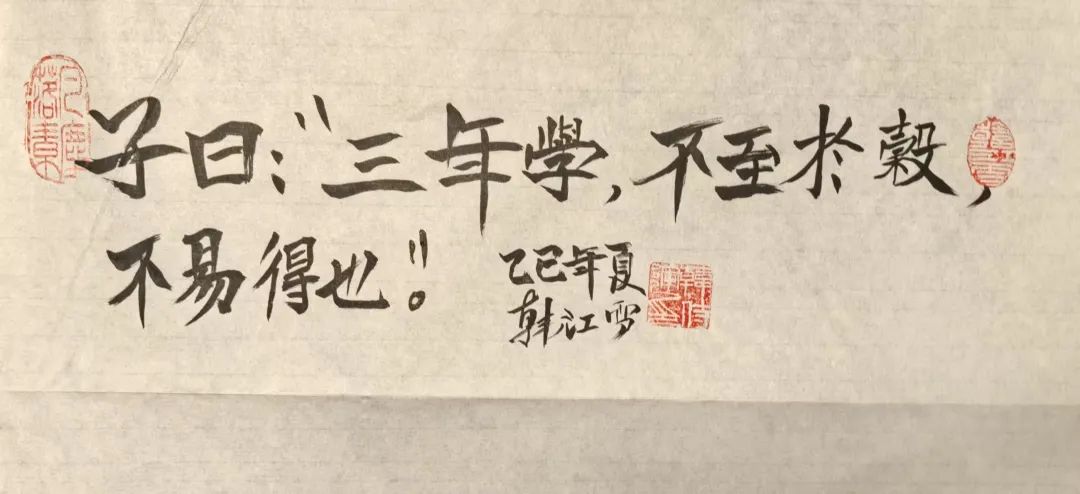 子曰：“三年學，不至於穀，
不易得也”。
乙巳年夏
韩江雪